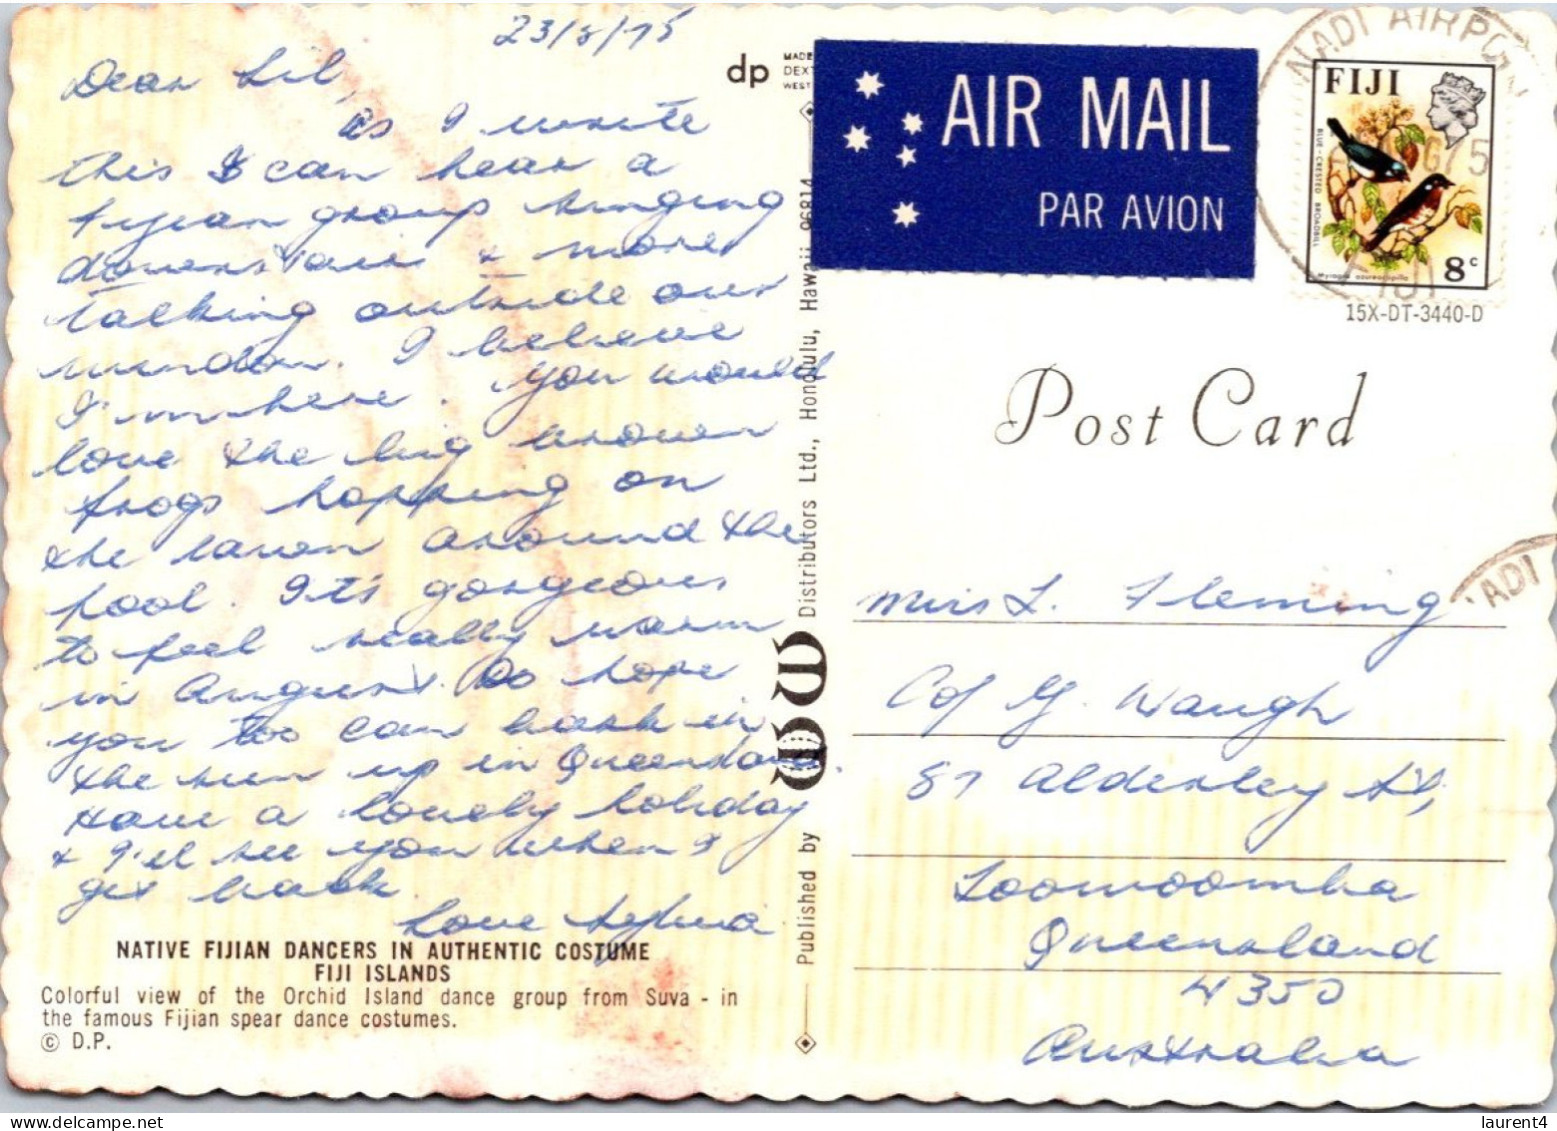 23/8/75
Dear Lil,
as I write
this I can hear a
Fijian group singing
downstairs & more
talking outside our
window. I believe
I'm here. You would
love the big brown
frogs hopping on
the lawn around the
pool. It's gorgeous
to feel really warm
in August. Do hope
you too can bask in
the sun up in Queensland.
Have a lovely holiday
& I'll see you when I
get back.
Love
NATIVE FIJIAN DANCERS IN AUTHENTIC COSTUME
FIJI ISLANDS
Colorful view of the Orchid Island dance group from Suva - in
the famous Fijian spear dance costumes.
© D.P.
dp
MADE
DEXT
WEST
Published by
Distributors Ltd., Honolulu, Hawaii 96814
AIR MAIL
PAR AVION
NADI AIRPO
FIJI
BLUE-CRESTED BROADBILL
Myiagra azureocapilla
8c
15X-DT-3440-D
Post Card
NADI
Miss L. Fleming
C/of G. Waugh
87 Alderley St,
Toowoomba
Queensland
4350
Australia
laurent4